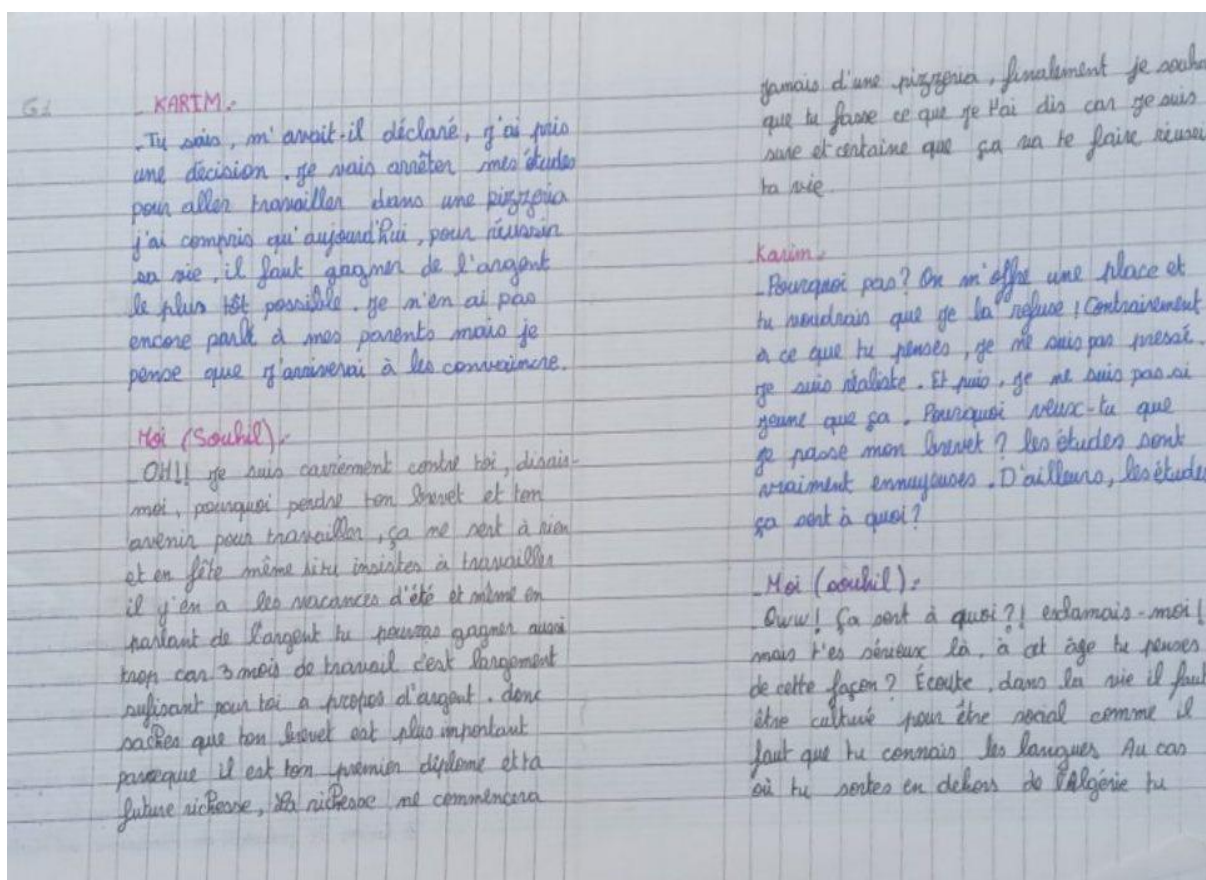 G1
KARIM.
-Tu sais, m'avait-il déclaré, j'ai pris
une décision. je vais arrêter mes études
pour aller travailler dans une pizzeria
j'ai compris qu'aujourd'hui, pour réussir
sa vie, il faut gagner de l'argent
le plus tôt possible. je n'en ai pas
encore parlé à mes parents mais je
pense que j'arriverai à les convaincre.
Moi (Souhil).
-OH!! je suis carrément contre toi, disais-
moi, pourquoi perdre ton brevet et ton
avenir pour travailler, ça ne sert à rien
et en fête même si tu insistes à travailler
il y'en a les vacances d'été et même en
parlant de l'argent tu pourras gagner aussi
trop car 3 mois de travail c'est largement
sufisant pour toi a propos d'argent. donc
saches que ton brevet est plus important
parceque il est ton premier diplome et ta
future richesse, la richesse ne commencera
jamais d'une pizzeria, finalement je
que tu fasse ce que je t'ai dis car je suis
sure et certaine que ça va te faire
ta vie
Karim.
-Pourquoi pas? On m'offre une place et
tu voudrais que je la refuse! Contrairement
à ce que tu penses, je ne suis pas pressé.
je suis réaliste. Et puis, je ne suis pas si
jeune que ça. Pourquoi veux-tu que
je passe mon brevet? les études sont
vraiment ennuyeuses. D'ailleurs, les
ça sert à quoi?
Moi (souhil).
-Oww! Ça sert à quoi?! exclamais-moi!
mais t'es sérieux là, à cet âge tu penses
de cette façon? Écoute, dans la vie il faut
être cultivé pour être social comme il
faut que tu connais les langues Au cas
où tu sortes en dehors de l'Algérie tu